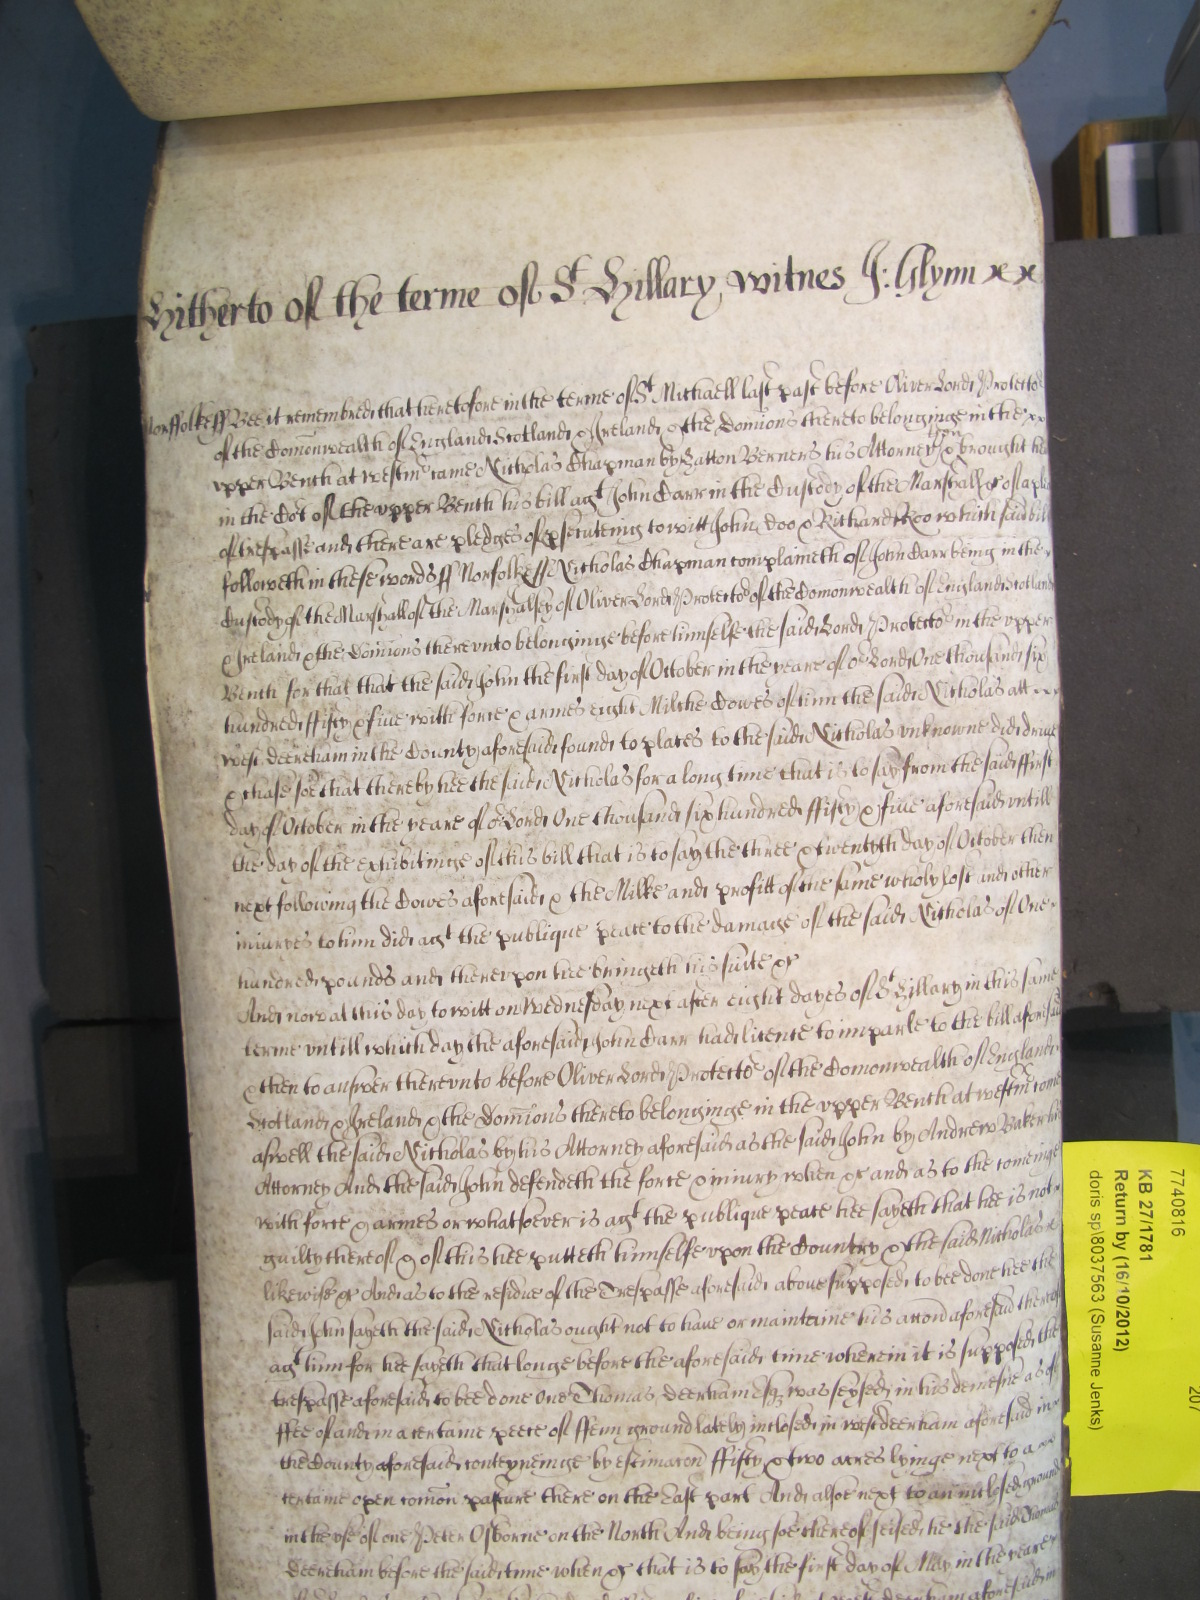 Hitherto of the terme of St Hillary witnes J: Glynn x x
Norffolke ss Bee it remembred that heretofore in the terme of St Michaell last past before Oliver Lord Protector
of the Comonwealth of England Scotland & Ireland & the Dominions thereto belonginge in the x x
upper Bench at Westmr came Nicholas Chapman by Hatton Berners his Attorney & brought
in the Cort of the upper Bench his bill agt John Carr in the Custody of the Marshall &c of a plea
of trespasse and there are pledges of psecuteing to witt John Doo & Richard Roo which said bill
followeth in these words ss Norfolke ss Nicholas Chapman complaineth of John Carr being in the
Custody of the Marshall of the Marshalsey of Oliver Lord Protector of the Comonwealth of England Scotland
& Ireland & the Dominions therevnto belonginge before himselfe the said Lord Protector in the vpper
Bench for that that the said John the first day of October in the yeare of or Lord One thousand six
hundred ffifty & fiue with force & armes eight Milche Cowes of him the said Nicholas att
west deereham in the County aforesaid found to places to the said Nicholas vnknowne did driue
& chase soe that thereby hee the said Nicholas for a long time that is to say from the said ffirst
day of October in the yeare of or Lord One thousand six hundred ffifty & fiue aforesaid vntill
the day of the exhibitinge of this bill that is to say the three & twentyth day of October then
next following the Cowes aforesaid & the Milke and profitt of the same wholy lost and other
iniuryes to him did agt the publique peace to the damage of the said Nicholas of One
hundred pounds and therevpon hee bringeth his suite &c
And now at this day to witt on Wednesday next after eight dayes of St Hillary in this same
terme vntill which day the aforesaid John Carr had licence to imparle to the bill aforesaid
& then to answer therevnto before Oliver Lord Protector of the Comonwealth of England
Scotland & Ireland & the Dominions thereto belonginge in the vpper Bench at westmr come
aswell the said Nicholas by his Attorney aforesaid as the said John by Andrew Baker his
Attorney And the said John defendeth the force & iniury when &c and as to the comeinge
with force & armes or whatsoever is agt the publique peace hee sayeth that hee is not
guilty thereof & of this hee putteth himselfe vpon the Country & the said Nicholas
likewise &c And as to the residue of the Trespasse aforesaid aboue supposed to bee done hee the
said John sayeth the said Nicholas ought not to haue or maintaine his accon aforesaid thereof
agt him for hee sayeth that longe before the aforesaid time wherein it is supposed the
trespasse aforesaid to bee done One Thomas deerham Esqr was seysed in his demesne as of
ffee of and in a certaine peece of ffenn ground lately inclosed in westdeerham aforesaid in
the County aforesaid conteyneinge by estimacon ffifty & two acres lyinge next to a
certaine open comon pasture there on the East part And alsoe next to an inclosed ground
in the vse of one Peter Osborne on the North And being soe thereof seised he the said Thomas
deereham before the said time when &c that is to say the first day of May in the yeare
7740816
KB 27/1781
Return by (16/10/2012)
doris sp\8037563 (Susanne Jenks)
207